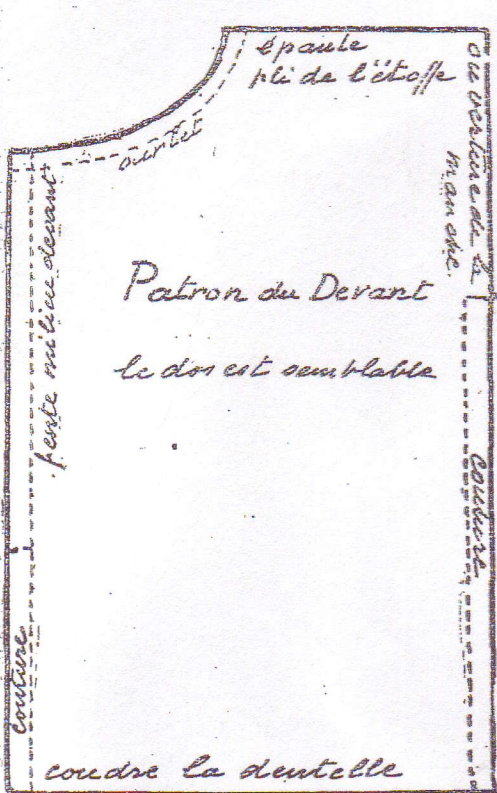 épaule
pli de l'étoffe
ourlet
ouverture de la
manche.
fente milieu devant
Patron du Devant
le dos est semblable
couture
couture
coudre la dentelle